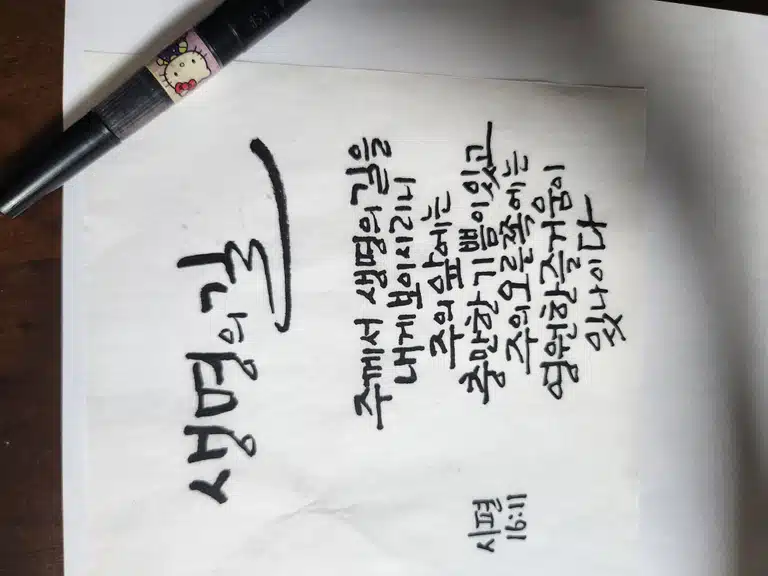 생명의 길
주께서 생명의 길을
내게 보이시리니
주의 앞에는
충만한 기쁨이 있고
주의 오른쪽에는
영원한 즐거움이
있나이다
시편
16:11